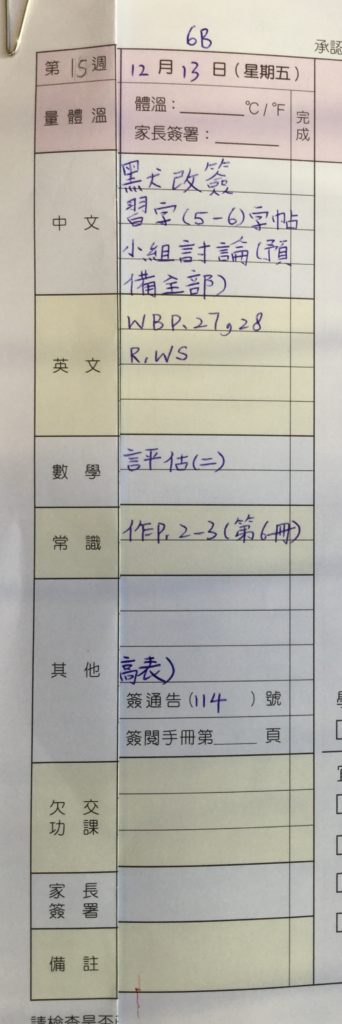 6B
承認
第15週 12月13日(星期五)
量體溫 體溫:______℃/℉ 完成
家長簽署:______
中文 默犬改簽
習字(5-6)字帖
小組討論(預
備全部)
英文 WBP.27,28
R.WS
數學 評估(二)
常識 作P.2-3(第6冊)
其他 高表)
簽通告(114 )號
簽閱手冊第____頁
欠交功課
家長簽署
備註
請檢查是否